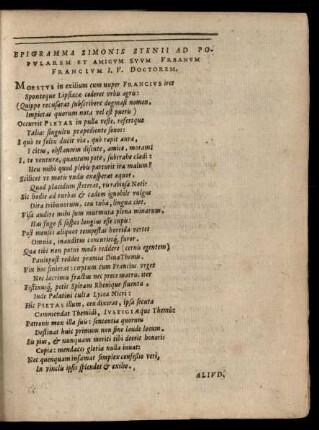 EPIGRAMMA ZIMONIS ZTENII AD PO-
PVLAREM ET AMICVM SVVM VRBANVM
FRANCIVM I. V. DOCTOREM.
MOESTVS in exilium cum nuper FRANCIVS iret
Sponteque Lipsiacæ cederet urbis agro:
(Quippe recusarat subscribere dogmati nomen,
Impietas quorum nota vel est pueris)
Occurrit PIETAS in pulla veste, refertque
Talia singultu præpediente sonos:
I quò te felix ducit via, quò rapit aura,
I citus, obstantem discute, amice, moram:
I, te ventura, quantum pote, subtrahe cladi:
Heu mihi quod plebs parturit ira malum!
Scilicet ut motis vndis exasperat æquor,
Quod placidum steterat, turbabusq; Noti:
Sic hodie ad turbas & cædem ignobile vulgus
Dira tribunorum, ceu tuba, lingua ciet.
Visa audire mihi jum murmura plena minarum,
Hai fuge si sospes longius esse cupis:
Post menses aliquot tempestas horrida vertet
Omnia, inauditus concutietq; furor.
Quæ tibi non potui modo reddere (cernis egentem)
Pauló post reddet præmia Diua Themis.
Vix hæc finierat: cœptum cum Francius vrget
Nec lacrimis fractus nec prece matris. iter
Festinusq; petit Spiram Rhenique fluenta,
Inde Palatini culta Lycea Nicri:
Hic PIETAS illum, cen dixerat, ipsa secuta
Commendat Themidi, IVSTITIAEque Themis:
Patroni mox illa suis: sententia quorum
Destinat huic primum non sine laude locum.
Sis pius, & nunquam meriti tibi deerit honoris
Copia: mendaces gloria nulla iuuat:
Nec quenquam infamat simplex confessio veri,
In vinclis ipsis splendet & exilio.
ALIVD.